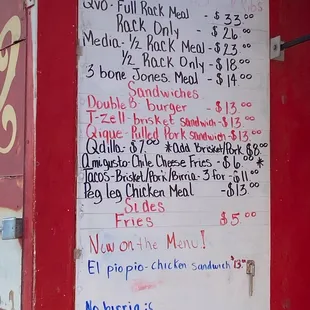 QVO - Full Rack Meal - $33.00
Rack Only - $26.00
Media - 1/2 Rack Meal - $23.00
1/2 Rack Only - $18.00
3 bone Jones. Meal - $14.00
Sandwiches
Double B burger - $13.00
J-zell - brisket sandwich - $13.00
Qique - Pulled Pork sandwich - $13.00
Qdilla - $7.00 *Add Brisket/Pork $8.00
Amigusto - Chile Cheese Fries - $6.00 *
Tacos - Brisket/Pork/Birria - 3 for - $11.00
Peg leg Chicken Meal - $13.00
Sides
Fries $5.00
New on the Menu!
El pio pio - chicken sandwich $13.00
No birria :c